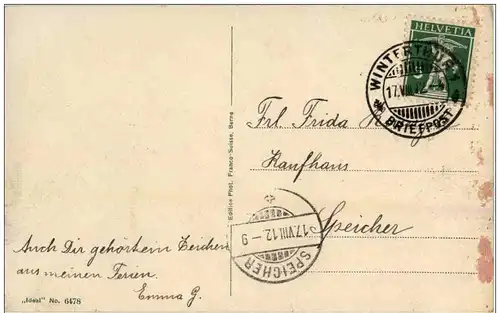 HELVETIA
WINTERTHUR 1
17.VIII.12
BRIEFPOST
Frl. Frida
Kaufhaus
Speicher
Edition Phot. Franco-Suisse, Berne
17.VIII.12.-9
SPEICHER
Auch Dir gehört ein Zeichen
aus meinen Ferien.
Emma G.
„Ideal" No. 6478